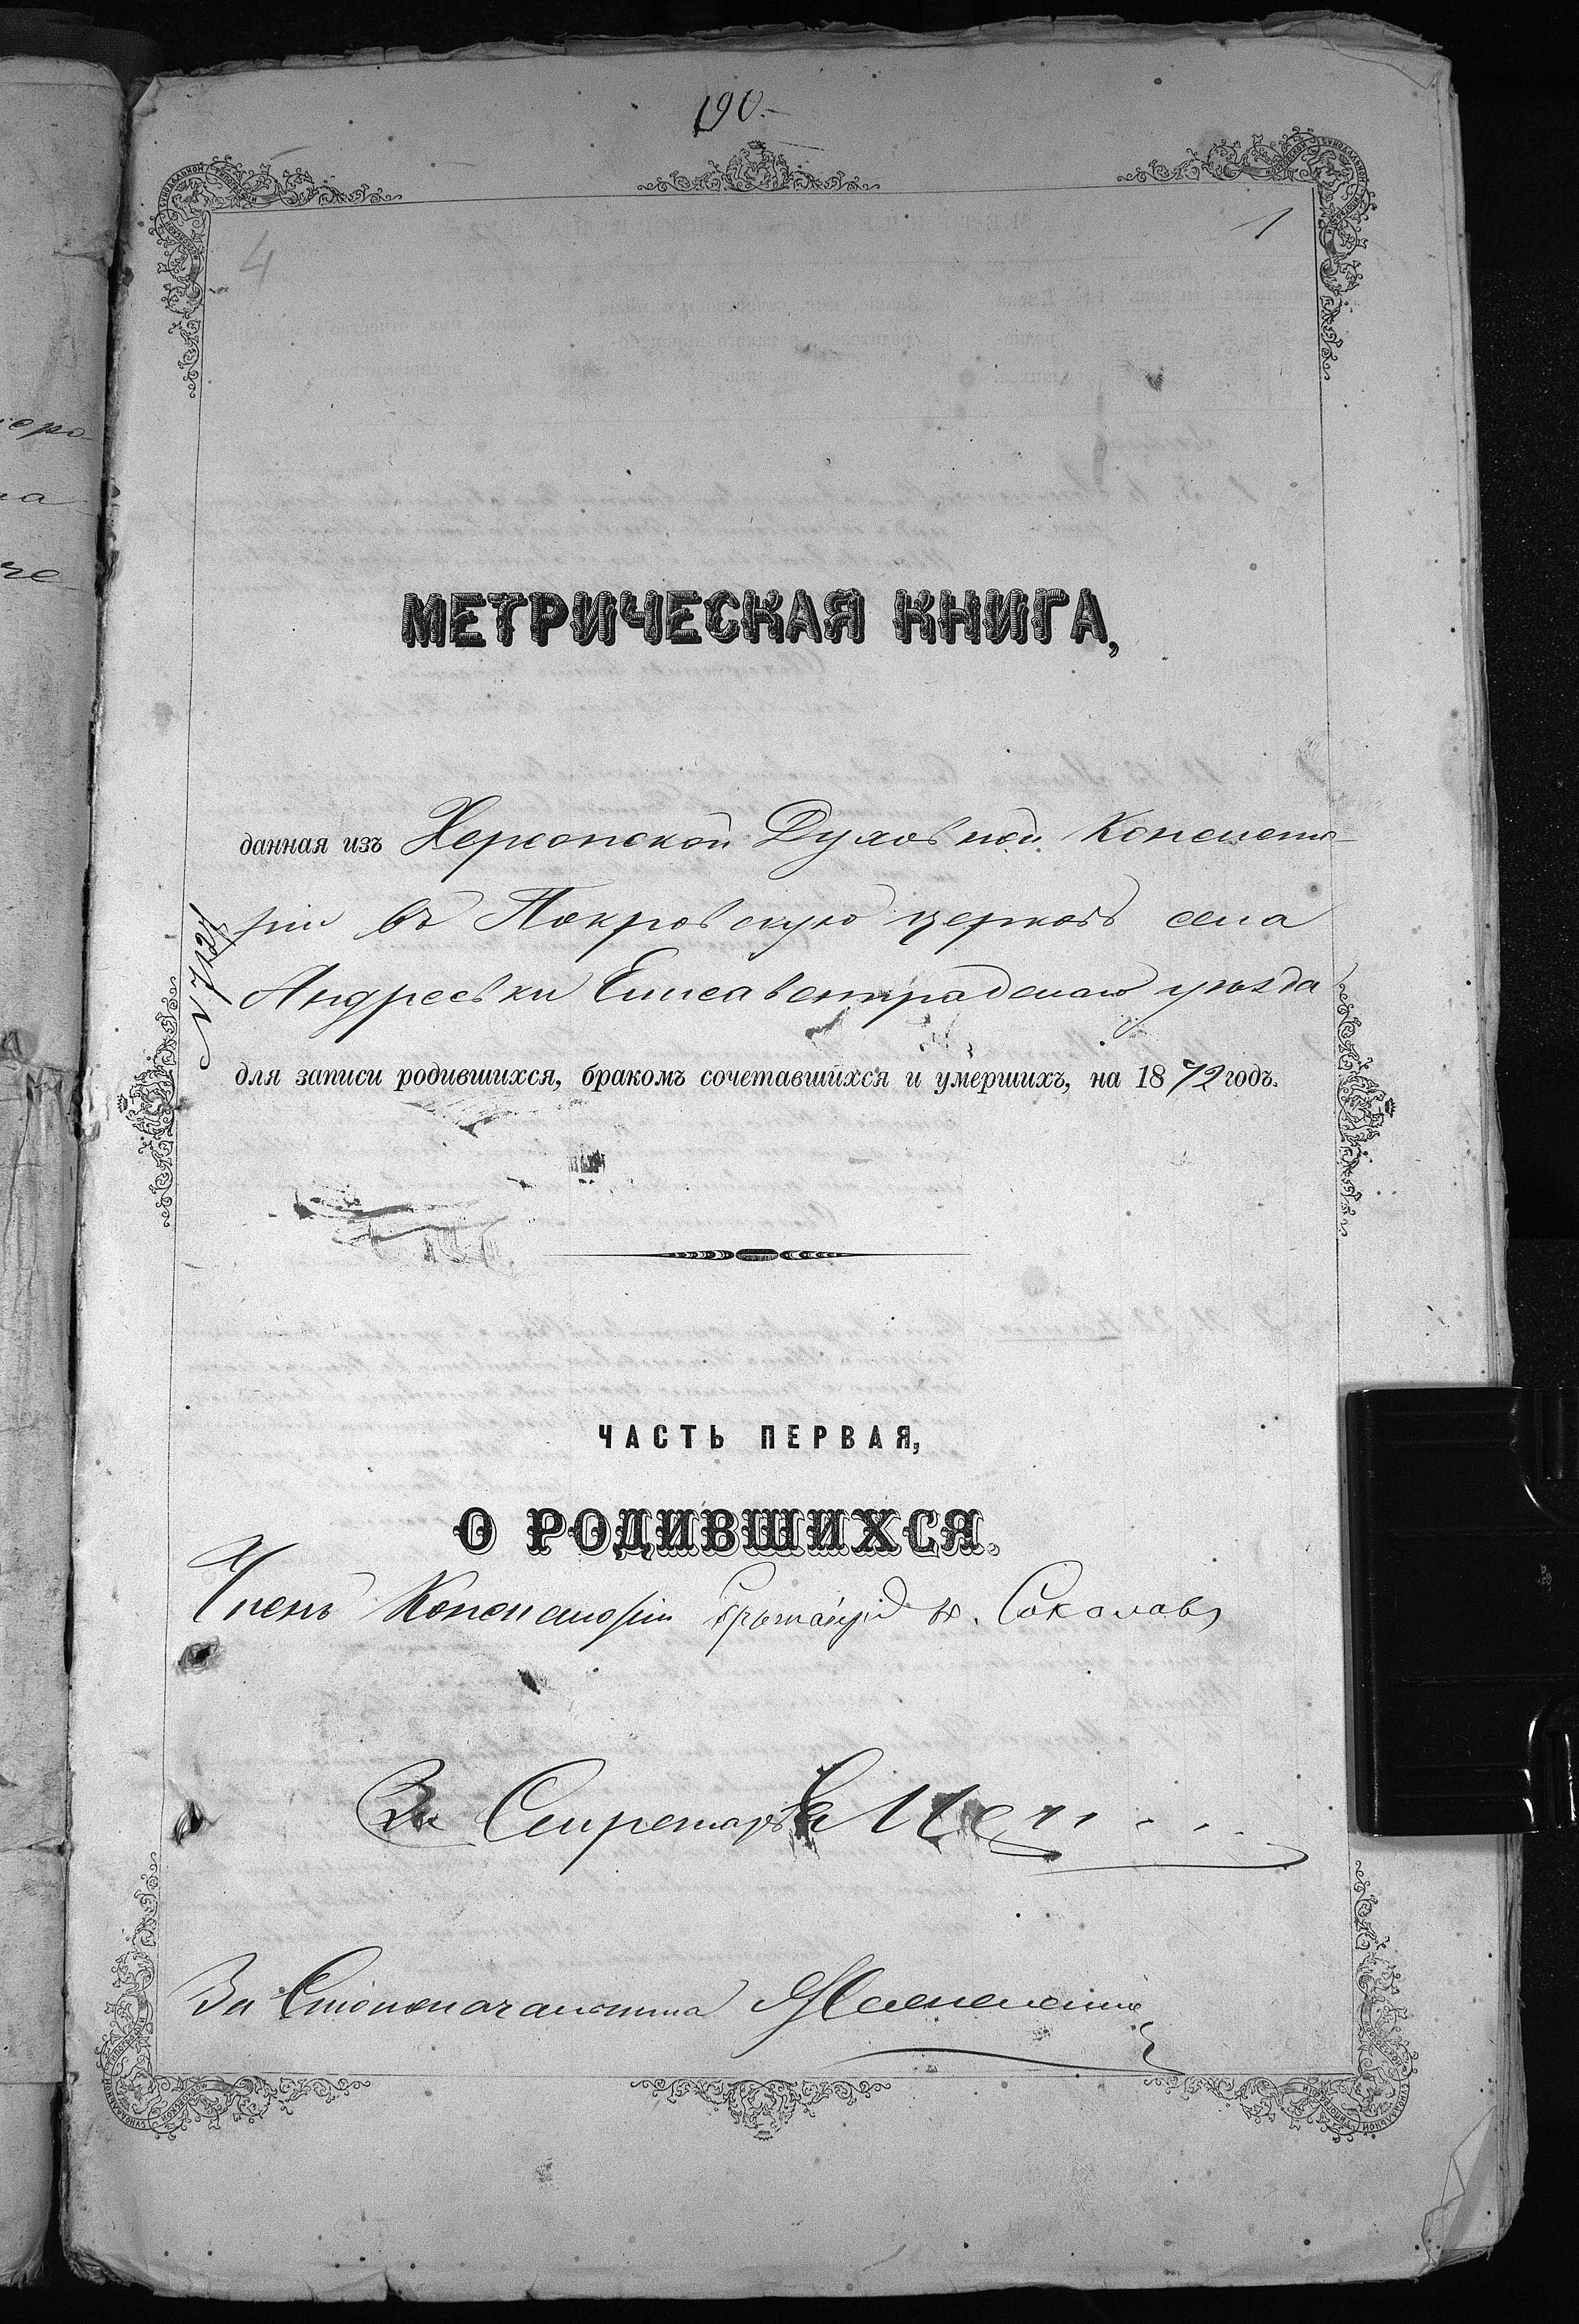 190.
4
1
МЕТРИЧЕСКАЯ КНИГА,
данная изъ Херсонской Духовной Консисто-
ріи въ Покровскую церковь села
Андреевки Елисаветградскаго уѣзда
№ 7121
для записи родившихся, бракомъ сочетавшихся и умершихъ, на 1872 годъ.
ЧАСТЬ ПЕРВАЯ,
О РОДИВШИХСЯ.
Членъ Консисторіи Соколовъ
За Секретаря
За Столоначальника